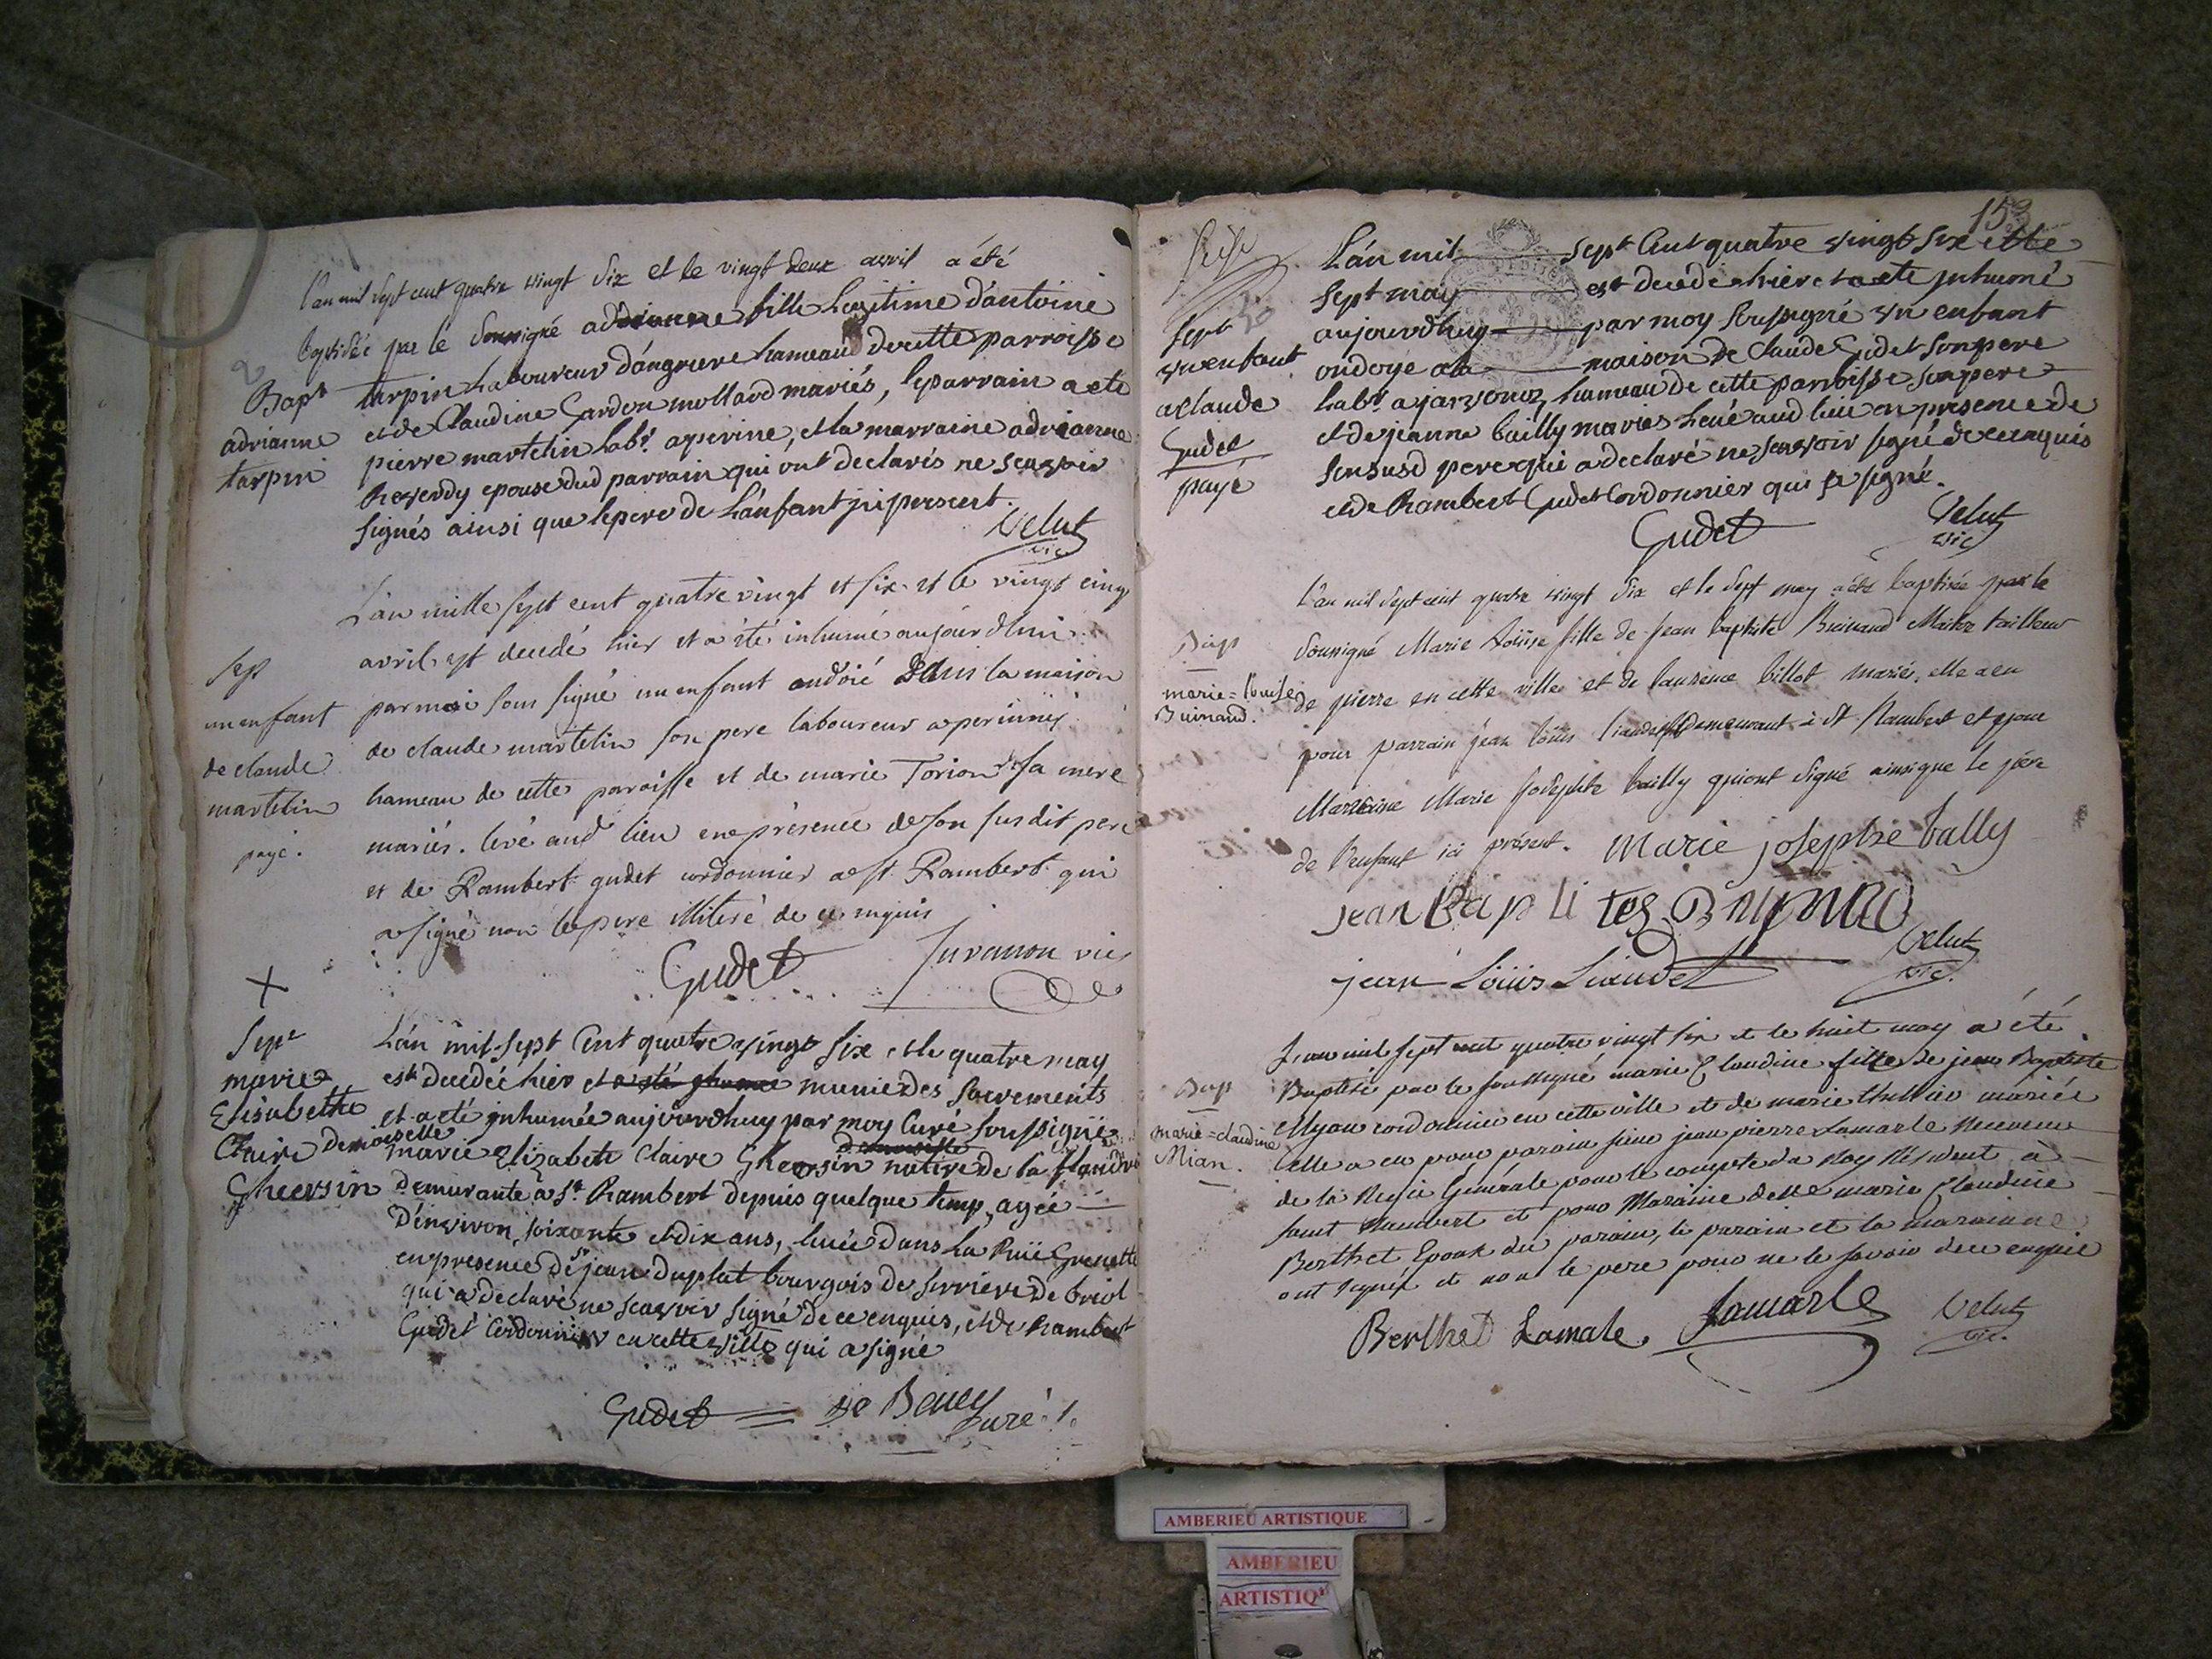 l'an mil sept cent quatre vingt six et le vingt deux avril a été
baptisée par le soussigné adrianne fille Legitime d'antoine
Bapt
adrianne
tarpin
tarpin Laboureur d'angriere hameau de cette parroisse
et de Claudine Gardon mollard mariés, le parrain a ete
pierre martelin Labr. a perine, et la marraine adrianne
Reverdy epouse dud parrain qui ont declarés ne scavoir
signés ainsi que le pere de L'anfant ji present.
Velut
vic
L'an mille sept cent quatre vingt et six et le vingt cinq
Sep
un enfant
de claude
martelin
payé.
avril est decedé hier et a été inhumé aujourdhui
par moi sous signé un enfant ondoié dans la maison
de claude martelin son pere laboureur a perinnes
hameau de cette paroisse et de marie Torion sa mere
mariés. levé aud lieu en présence de son susdit pere
et de Rambert gudet cordonnier a st Rambert qui
a signé non le pere illiteré de ce enquis
Gudet Juvanon vic
+
Sepr
marie
Elisabethe
Claire demoiselle
Gheersin
L'an mil sept Cent quatre vingt six et le quatre may
est decedée hier et a été inhumé munie des sacrements
et a eté inhumée aujourdhuy par moy Curé soussigné
demoiselle
marie Elizabeth Claire Gheersin native de la flandre
demurante a St Rambert depuis quelque temp, agée
D'environ soixante et dix ans, levée dans La Ruë Grenette
en presence de sr jean duplat bourgois de serriere de briol
qui a declaré ne scavoir signé de ce enquis, et de Rambert
Gudet Cordonnier en cette ville qui a signé
Gudet De Beney
curé
153
Sept
un enfant
a claude
Gudet
payé
L'an mil sept Cent quatre vingt six et le
sept may est decedé hier et a ete inhumé
aujourdhuy par moy soussigné un enfant
ondoyé a la maison de Claude Gudet son pere
Labr. a javornoz hameau de cette parroisse son pere
et de jeanne bailly mariés Levé aud lieu en presence de
son susd pere qui a declaré ne scavoir signé de ce enquis
et de Rambert Gudet Cordonnier qui a signé.
Gudet Velut
vic
L'an mil sept cent quatre vingt six et le sept may a été baptisée par le
Bap
marie=Louise
Buinand.
soussigné Marie Loüise fille de Jean baptiste Buinand Maitre tailleur
de pierre en cette ville et de laurence billot mariés, elle a eu
pour parrain jean Loüis Liaudet demeurant à St Rambert et pour
Marraine Marie Josephte bailly qui ont signé ainsi que le père
de l'enfant ici présent. Marie josephte bally
jean Baptites Buinand
jean Loüis Liaudet Velut
vic.
L'an mil sept cent quatre vingt six et le huit may a été
Bap
marie=claudine
Mian.
Baptisé par le soussigné marie Claudine fille de jean Baptiste
Myan cordonnier en cette ville et de marie thullier mariés
elle a eu pour parain sieur jean pierre Lamarle Receveur
de la Regie Générale pour le compte du Roy Résident à
saint Rambert et pour Maraine delle marie Claudine
Berthet Epouse du parain, le parain et la maraine
ont signés et non le pere pour ne le savoir de ce enquis
Berthet Lamale. Lamarle Velut
vic.
AMBERIEU ARTISTIQUE
AMBERIEU
ARTISTIQ